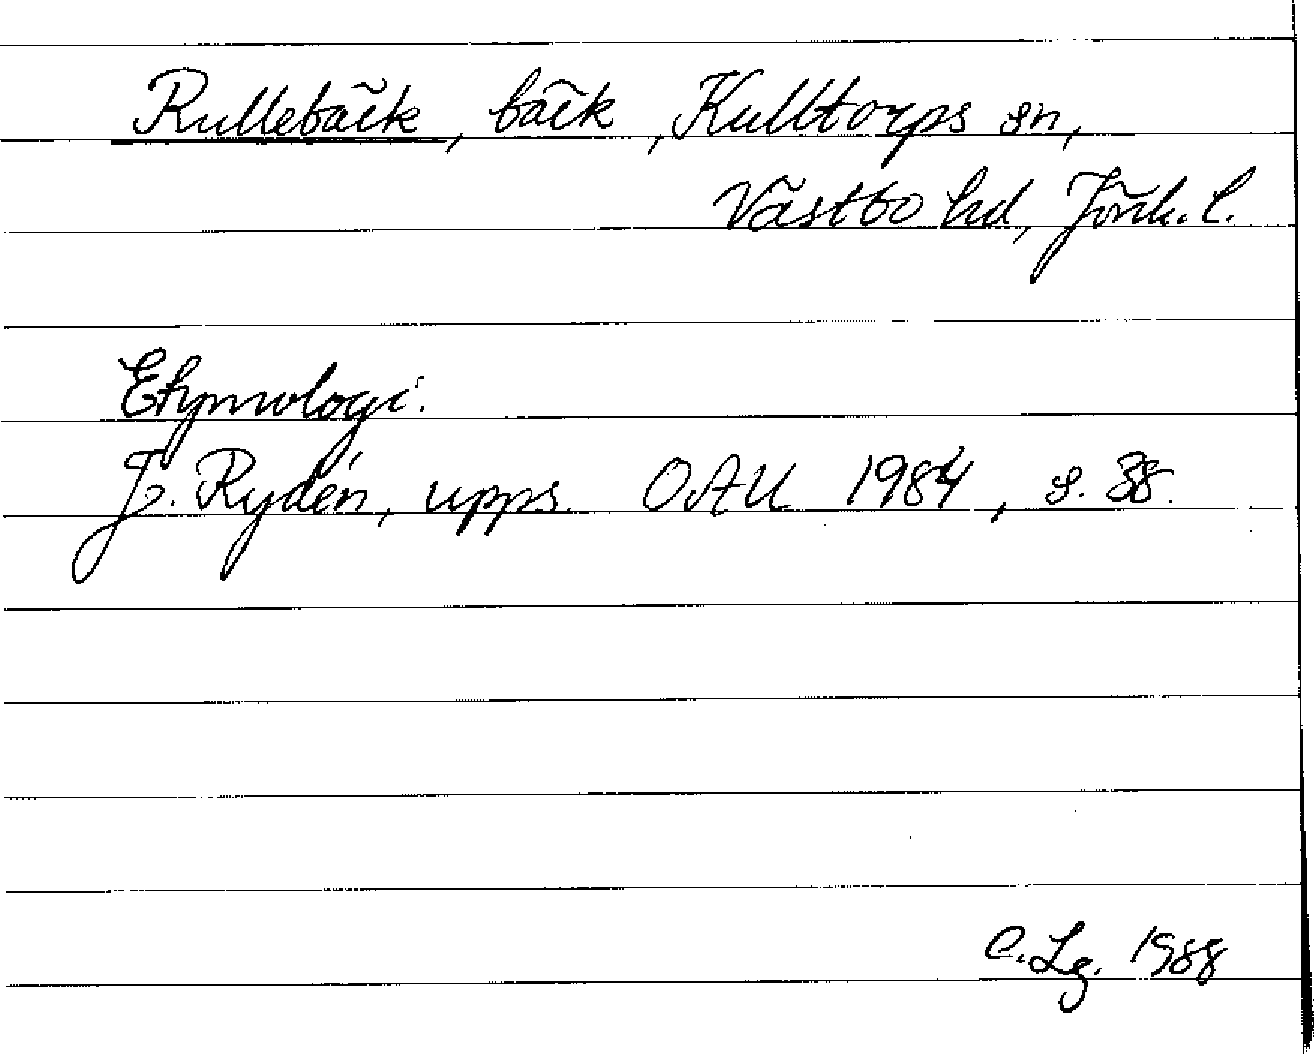 Rullebäck, bäck, Kulltorps sn,
Västbo hd, Jönk. l.
Etymologi.
Jo. Rydén, upps. OAU 1984, s. 38.
C. Lg. 1988